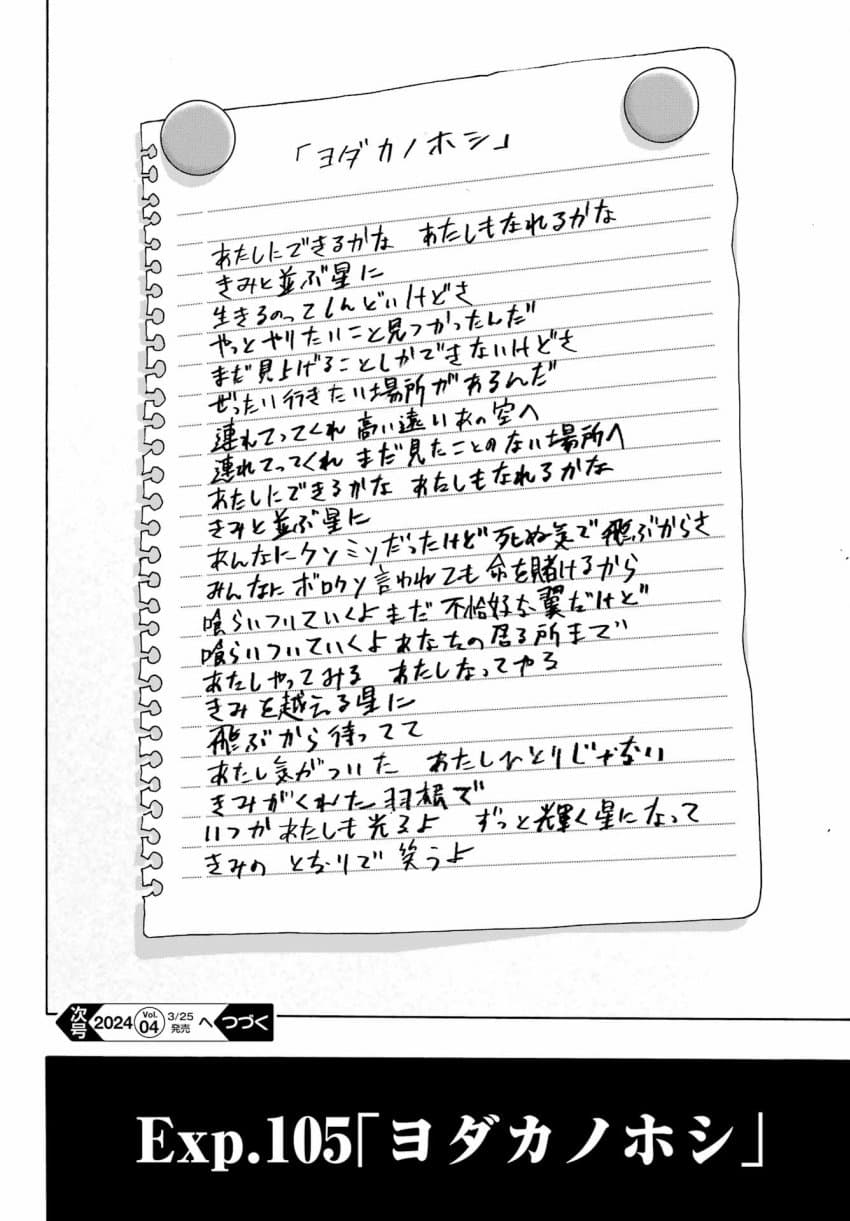 「ヨダカノホシ」
あたしにできるかな　あたしもなれるかな
きみと並ぶ星に
生きるのってしんどいけどさ
やっとやりたいこと見つかったんだ
まだ見上げることしかできないけどさ
ぜったい行きたい場所があるんだ
連れてってくれ 高い遠いあの空へ
連れてってくれ まだ見たことのない場所へ
あたしにできるかな　あたしもなれるかな
きみと並ぶ星に
あんなにケンミツだったけど 死ぬ気で飛ぶからさ
みんなに ボロクソ言われても 命を賭けるから
喰らいついていくよ まだ 不恰好な翼だけど
喰らいついていくよ あなたの居る所まで
あたしやってみる　あたしなってやる
きみを越える星に
飛ぶから待ってて
あたし気がついた　あたしひとりじゃない
きみがくれた羽根で
いつかあたしも光るよ　ずっと輝く星になって
きみの となりで 笑うよ
次号 2024 Vol.04 3/25発売 へ つづく
Exp.105「ヨダカノホシ」